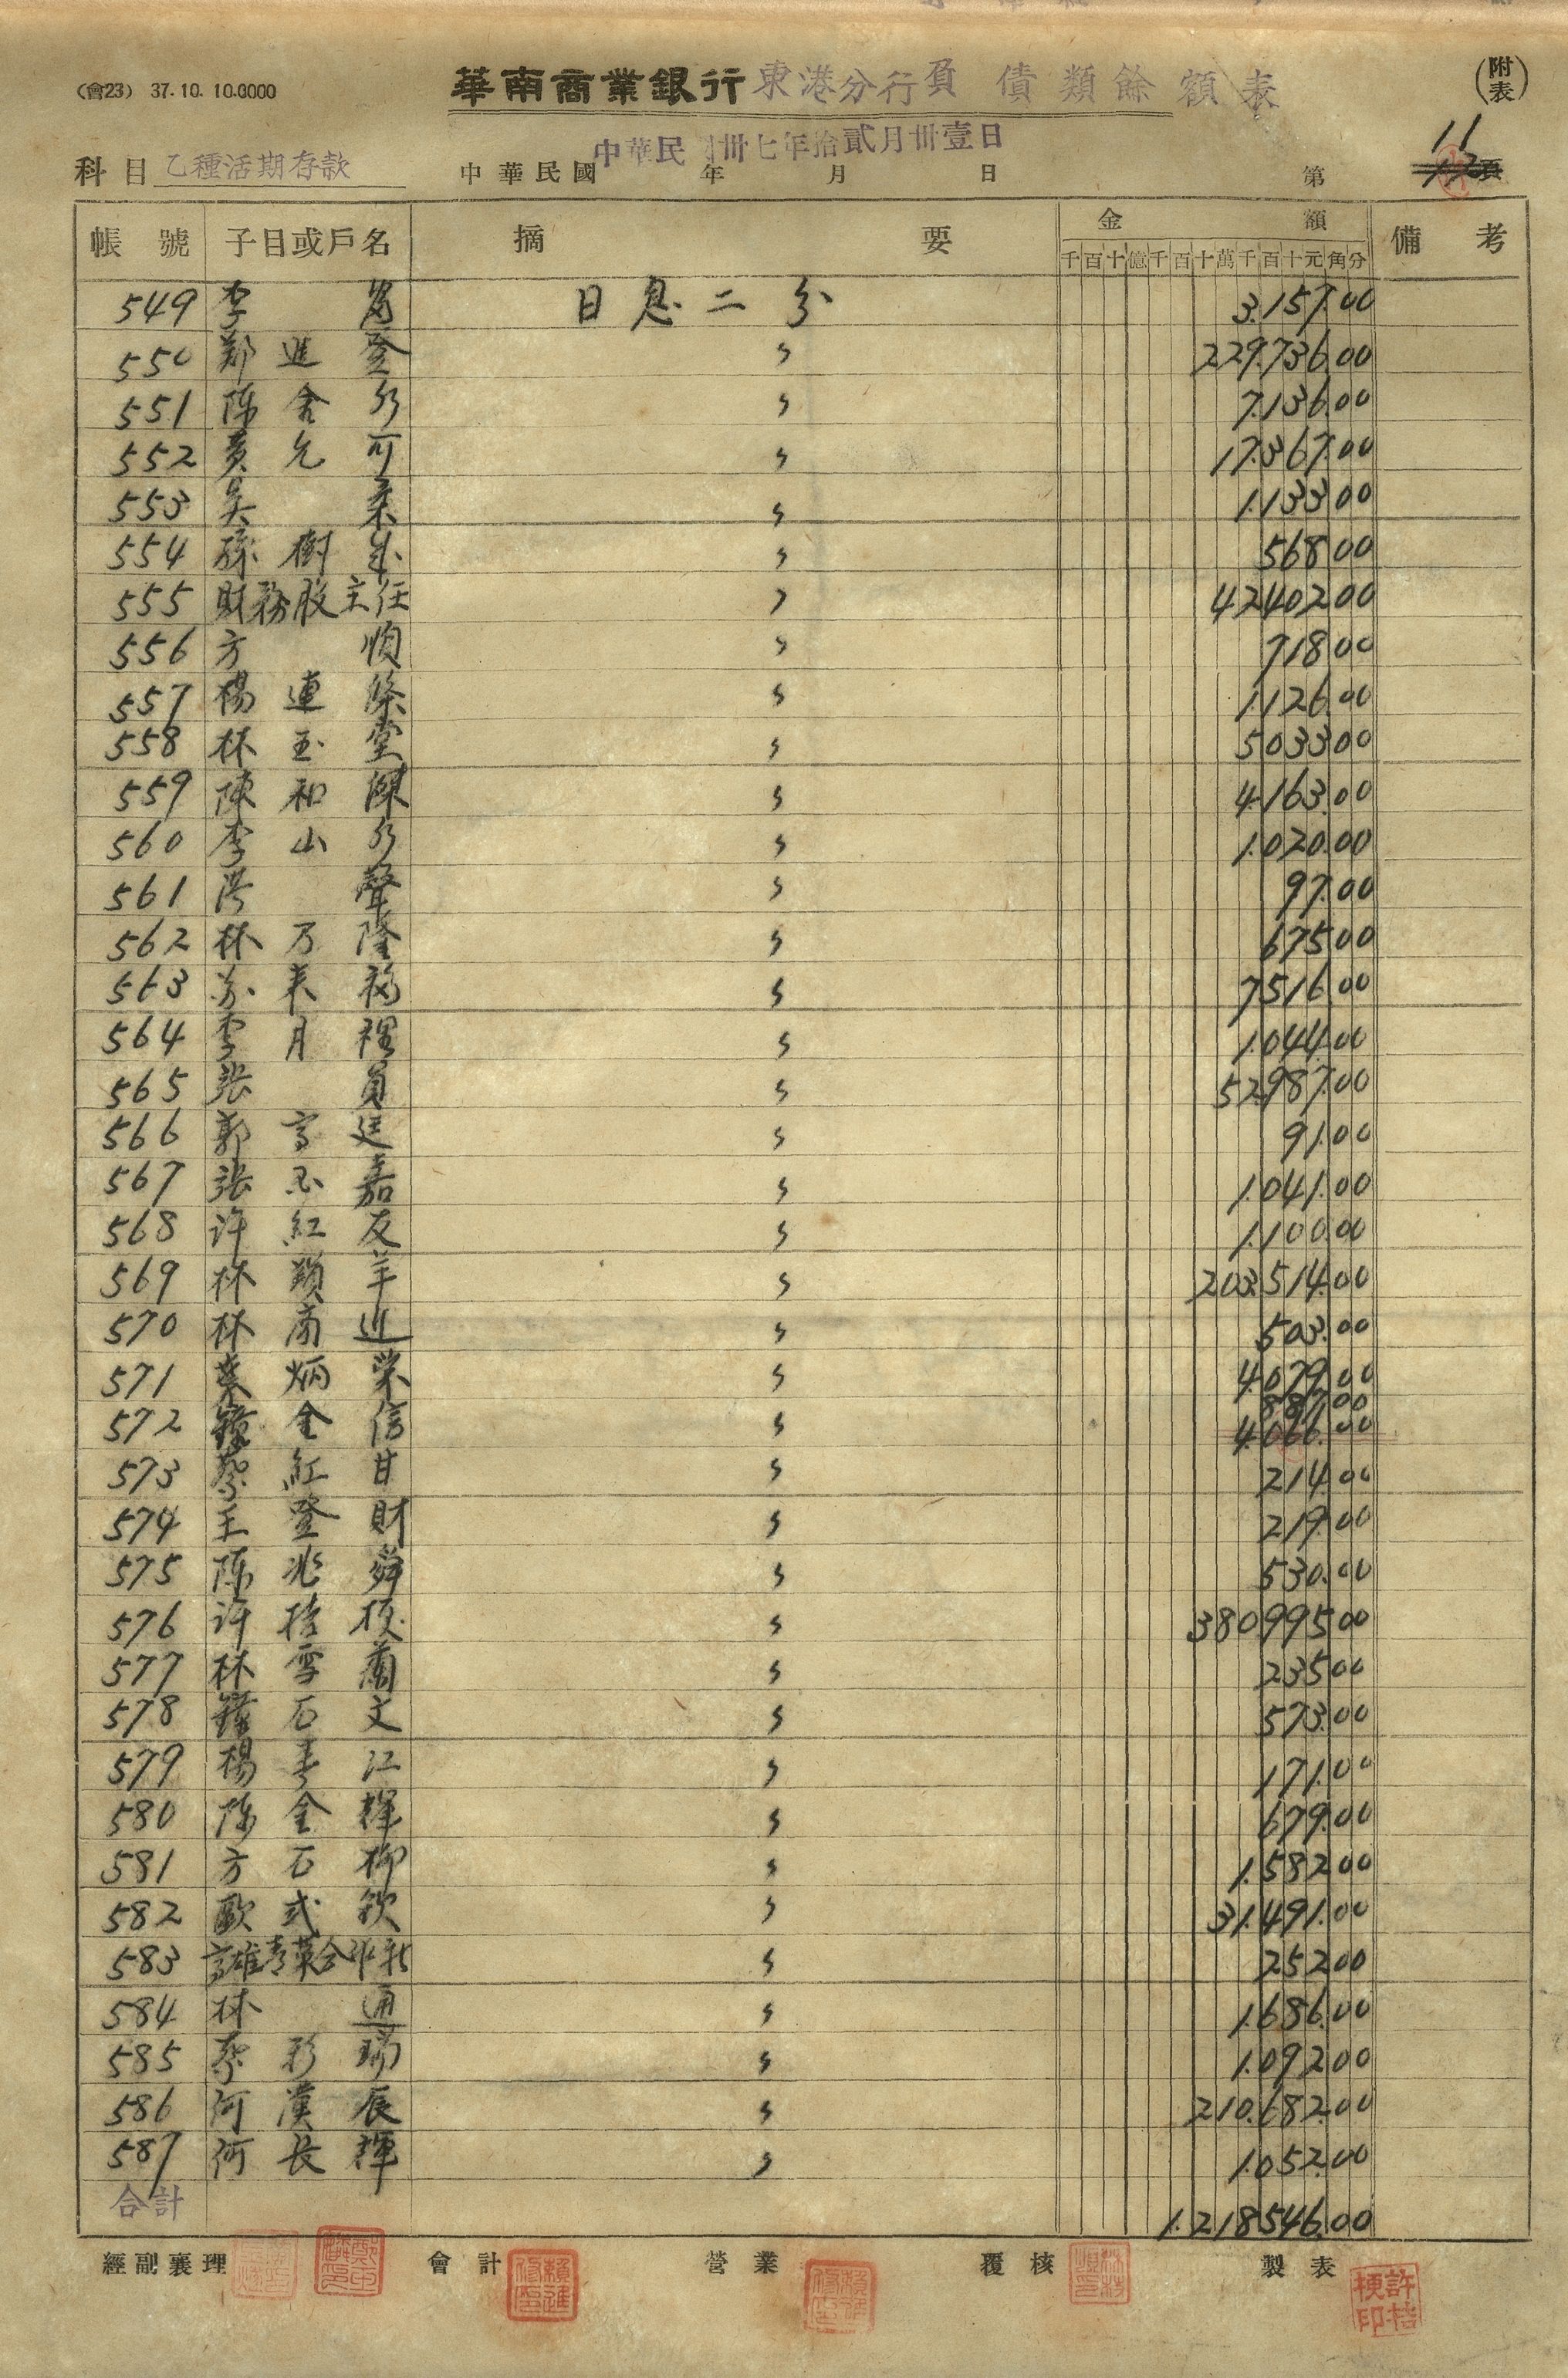 (會23) 37.10.10.0000
華南商業銀行東港分行負債類餘額表
(附表)
科目 乙種活期存款
中華民國卅七年拾貳月卅壹日
中華民國 年 月 日
第 11 頁
帳號 子目或戶名 摘要 金額 備考
千百十億千百十萬千百十元角分
549 李 日息二分 3.157.00
550 鄭進登 〃 229.736.00
551 陳舍 〃 7.136.00
552 黃允可 〃 17.367.00
553 吳 〃 1.133.00
554 孫樹 〃 568.00
555 財務股主任 〃 42402.00
556 方順 〃 718.00
557 楊連 〃 1.126.00
558 林玉堂 〃 5033.00
559 陳和 〃 4.163.00
560 李山 〃 1.020.00
561 洪聲 〃 97.00
562 林乃隆 〃 675.00
563 蘇來福 〃 7516.00
564 李月裡 〃 1.044.00
565 張員 〃 52.987.00
566 郭 廷 〃 91.00
567 張 嘉 〃 1.041.00
568 許紅友 〃 1.100.00
569 林 羊 〃 203.514.00
570 林 進 〃 503.00
571 葉炳榮 〃 4.079.00
572 鐘金信 〃 887.00
4.066.00
573 蔡紅甘 〃 214.00
574 王登財 〃 219.00
575 陳兆舜 〃 530.00
576 許桔梗 〃 380995.00
577 林雪蘭 〃 235.00
578 鐘石文 〃 573.00
579 楊春江 〃 171.00
580 陳金輝 〃 679.00
581 方石柳 〃 1.582.00
582 歐式欽 〃 31.491.00
583 高雄青菓合作社 〃 252.00
584 林通 〃 1.686.00
585 蔡彩瑞 〃 1.092.00
586 何漢辰 〃 210.682.00
587 何長輝 〃 1.052.00
合計 1.218546.00
經副襄理 會計 營業 覆核 製表
許桔梗印